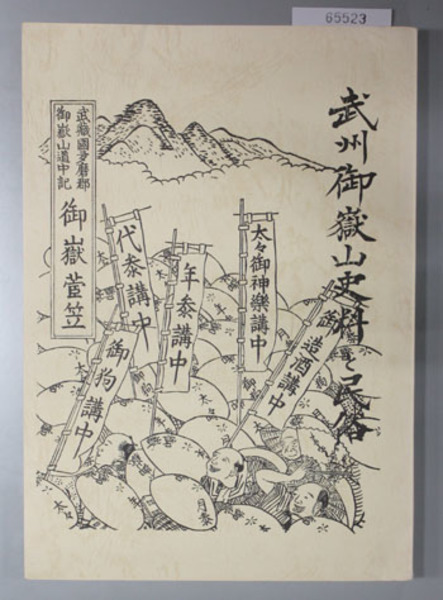 65523
武州御嶽山史料と民俗
武蔵國多磨郡
御嶽山道中記
御嶽菅笠
太々御神樂講中
御造酒講中
年参講中
代参講中
御狗講中
月参